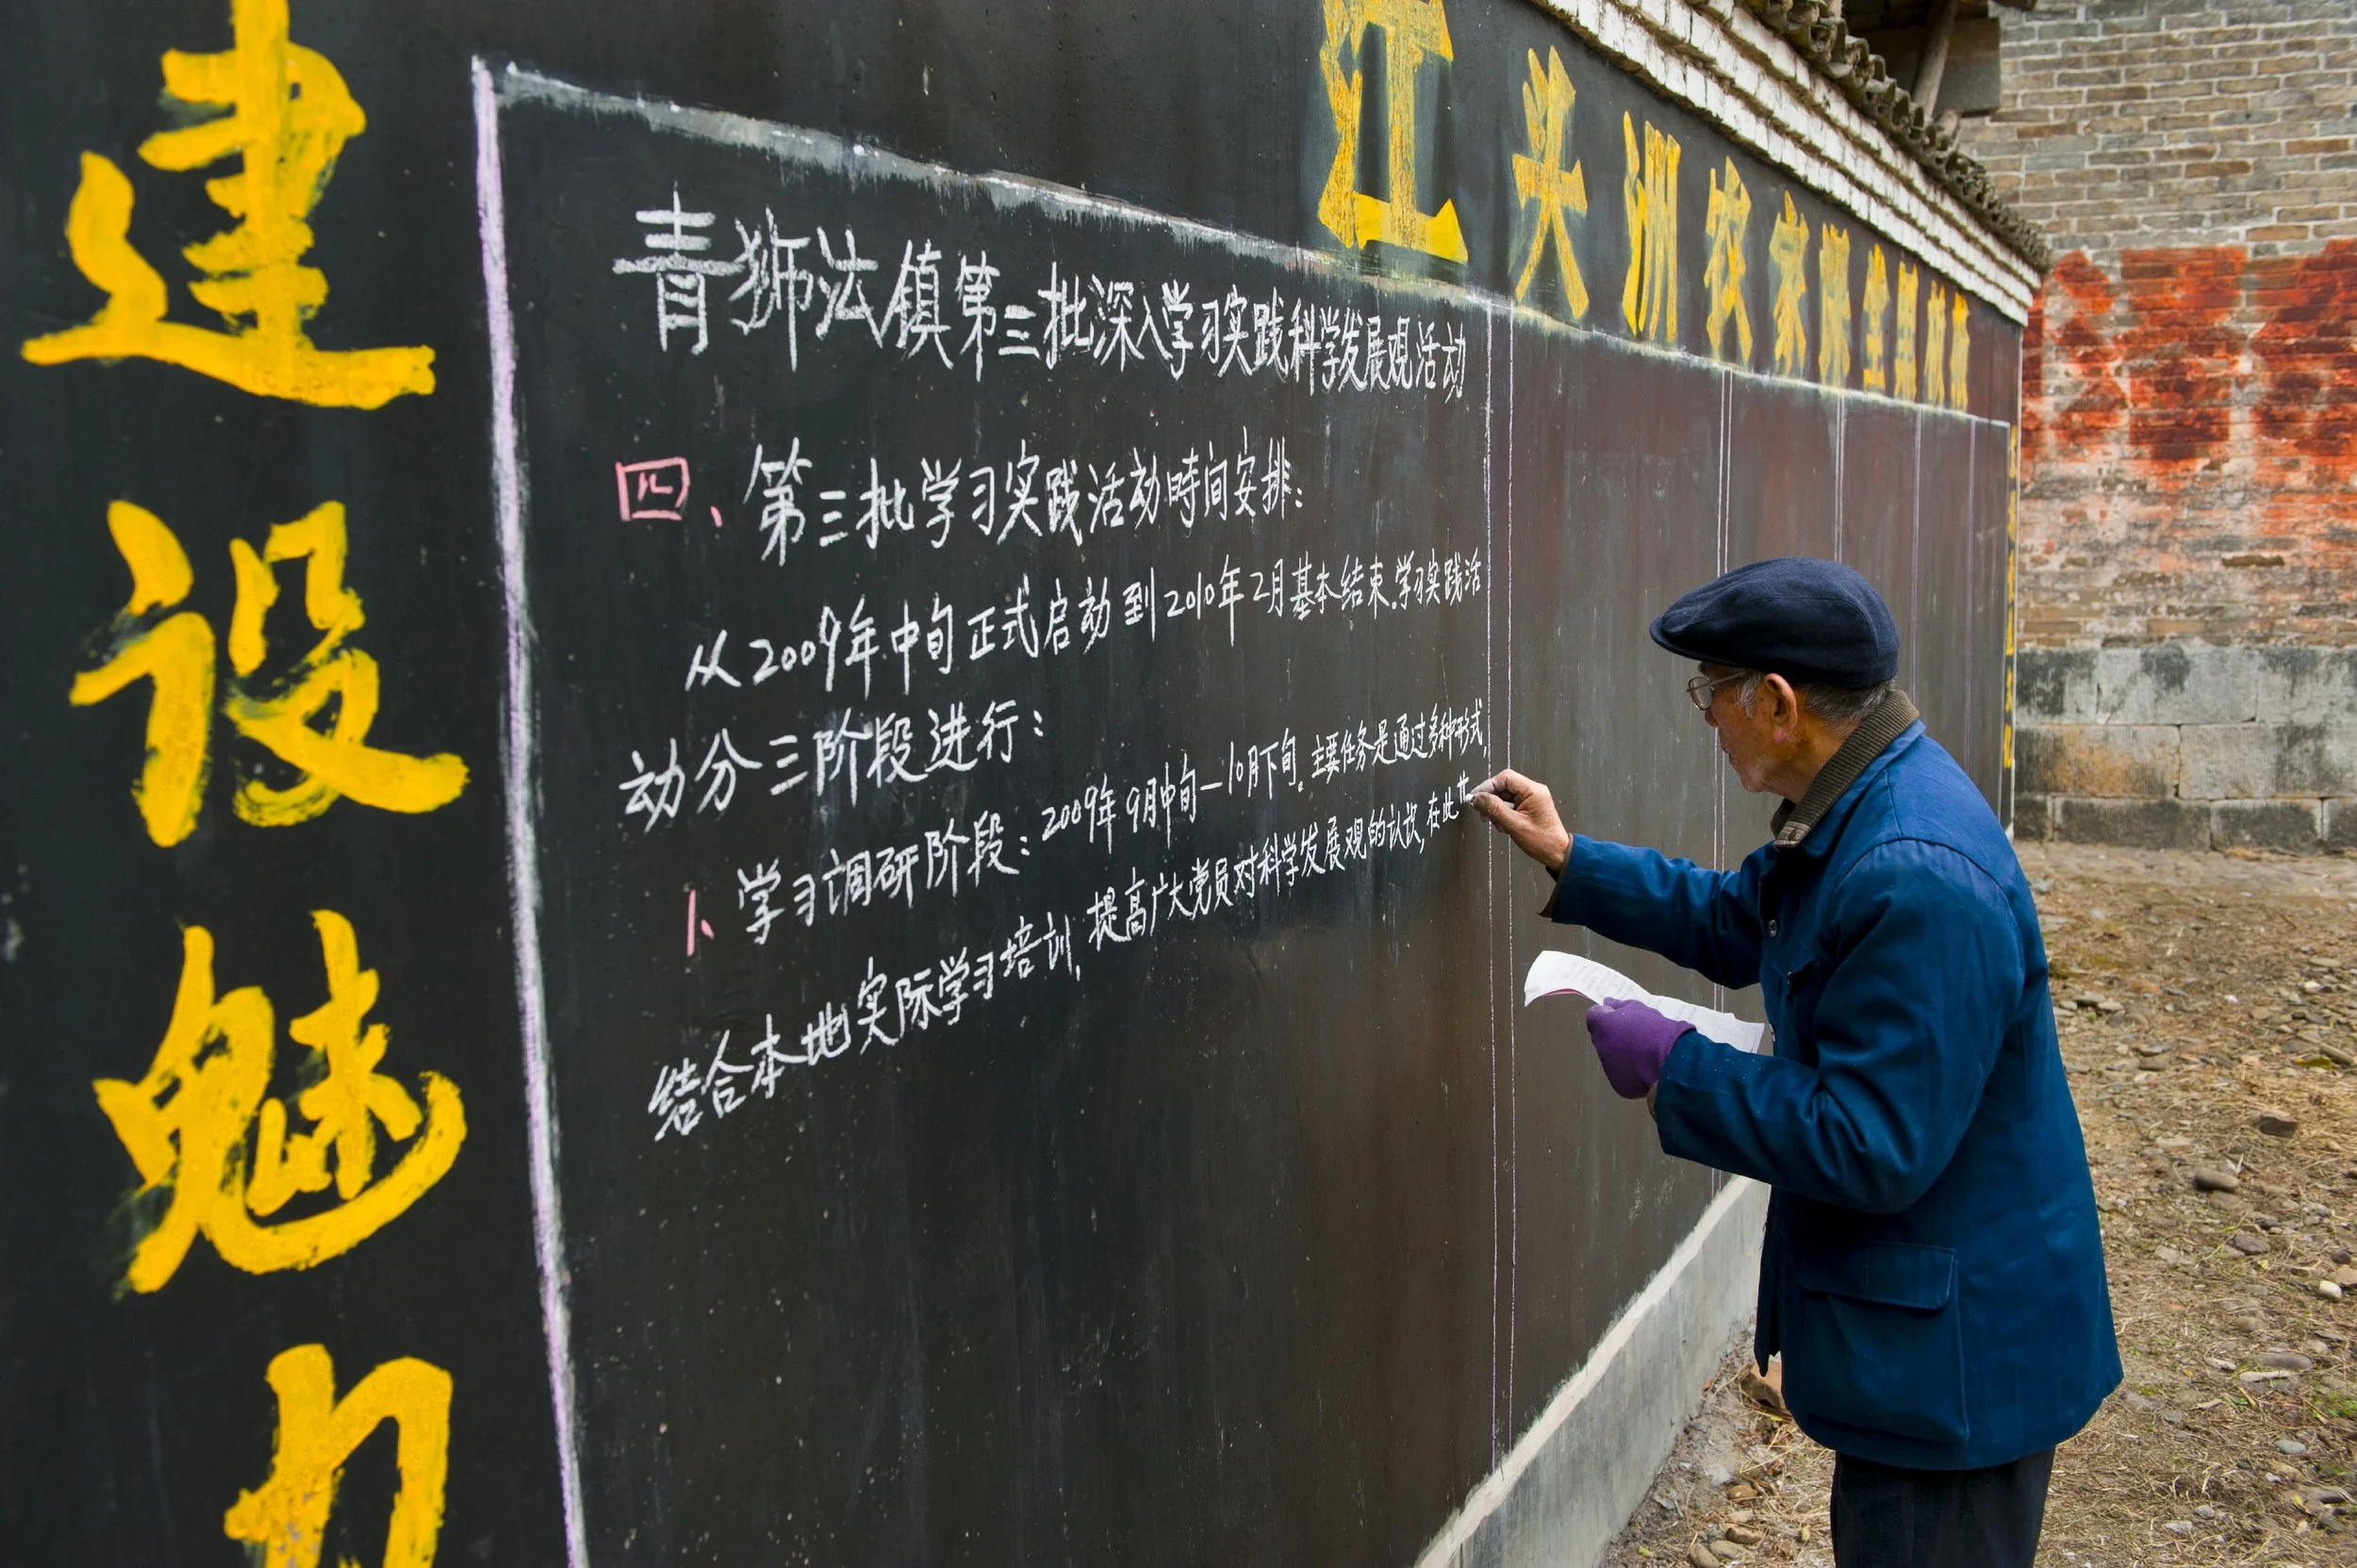 建设魅力
江头洲农家
青狮法镇第三批深入学习实践科学发展观活动
四、第三批学习实践活动時间安排：
从2009年中旬正式启动到2010年2月基本结束。学习实践活
动分三阶段进行：
1、学习调研阶段：2009年9月中旬—10月下旬。主要任务是通过多种形式，
结合本地实际学习培训，提高广大党员对科学发展观的认识，在此